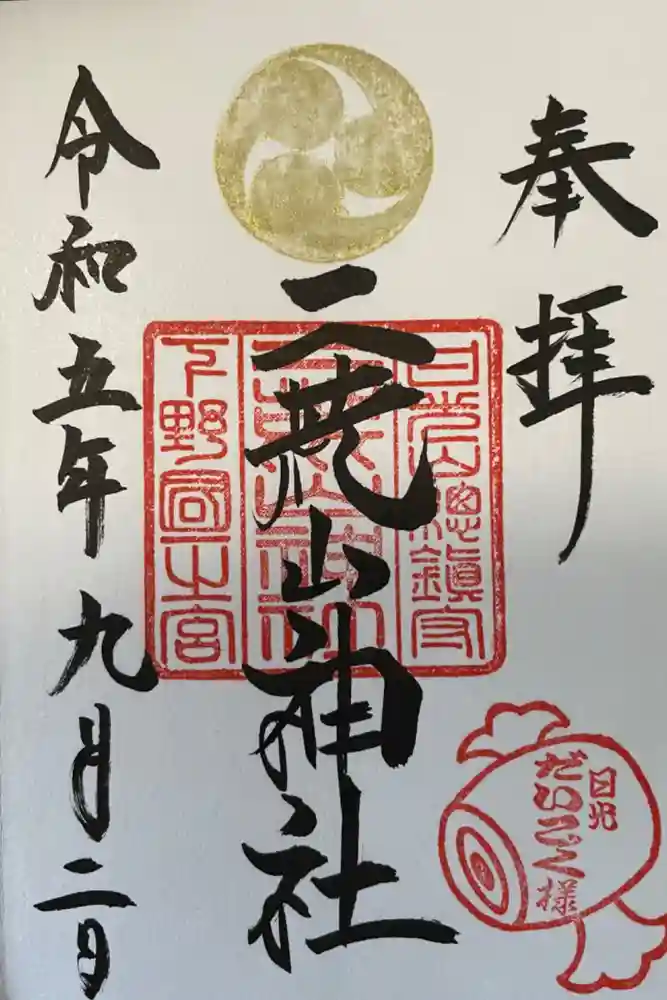 奉拝
日光山総鎮守
二荒山神社
下野国一之宮
二荒山神社
令和五年九月二日
日光
だいこく様